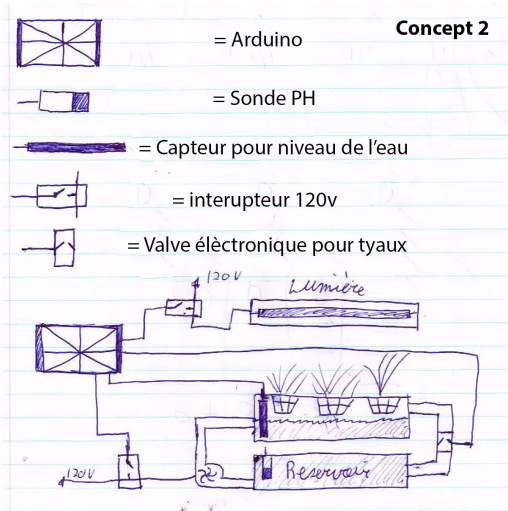 Concept 2
= Arduino
= Sonde PH
= Capteur pour niveau de l'eau
= interupteur 120v
= Valve élèctronique pour tyaux
120V
Lumière
120V
Reservoir